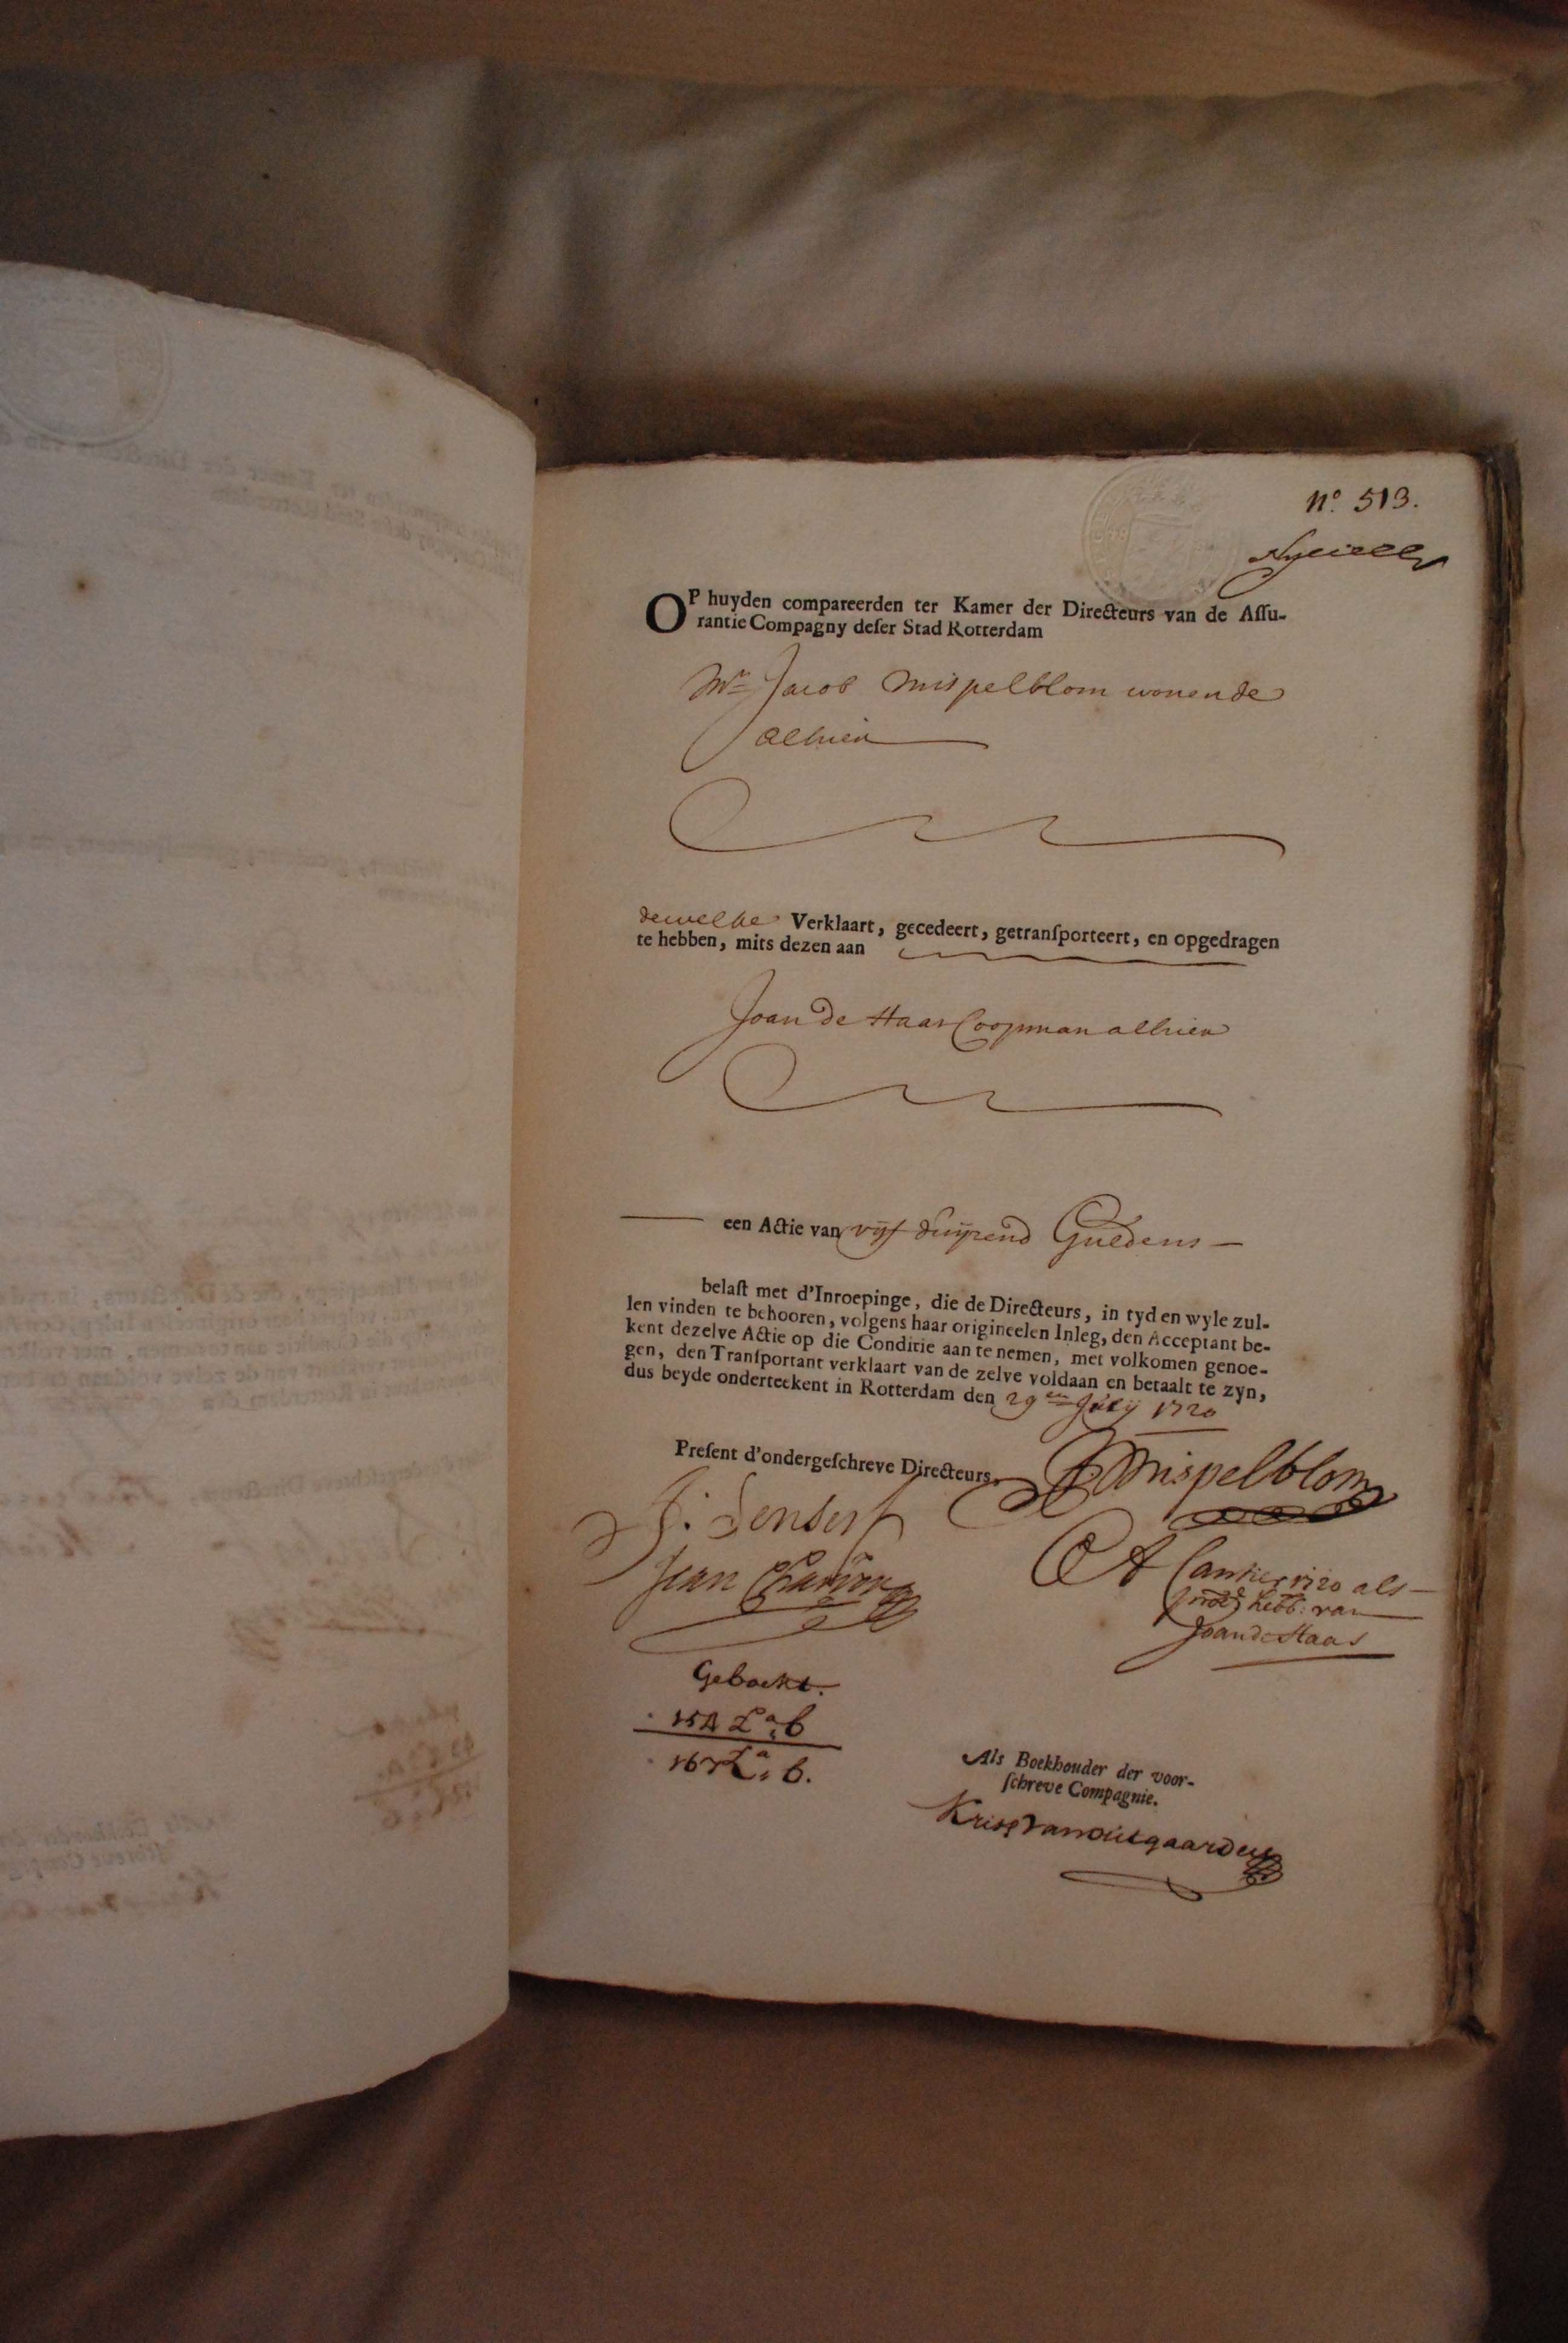 Nº. 513.
OP huyden compareerden ter Kamer der Directeurs van de Aſſu-
rantie Compagny deſer Stad Rotterdam
Mr Jacob Mispelblom wonende
alhier
dewelke Verklaart, gecedeert, getranſporteert, en opgedragen
te hebben, mits dezen aan
Joan de Haas Coopman alhier
een Actie van vijf duijzend Guldens
belaſt met d'Inroepinge, die de Directeurs, in tyd en wyle zul-
len vinden te behooren, volgens haar origineelen Inleg, den Acceptant be-
kent dezelve Actie op die Conditie aan te nemen, met volkomen genoe-
gen, den Tranſportant verklaart van de zelve voldaan en betaalt te zyn,
dus beyde onderteekent in Rotterdam den 29en July 1720
Preſent d'ondergeſchreve Directeurs.
Mispelblom
J: Senserf
Jean Charron
als
hebb: van
Joan de Haas
Geboekt.
154 La. b
La. b.
Als Boekhouder der voor-
ſchreve Compagnie.